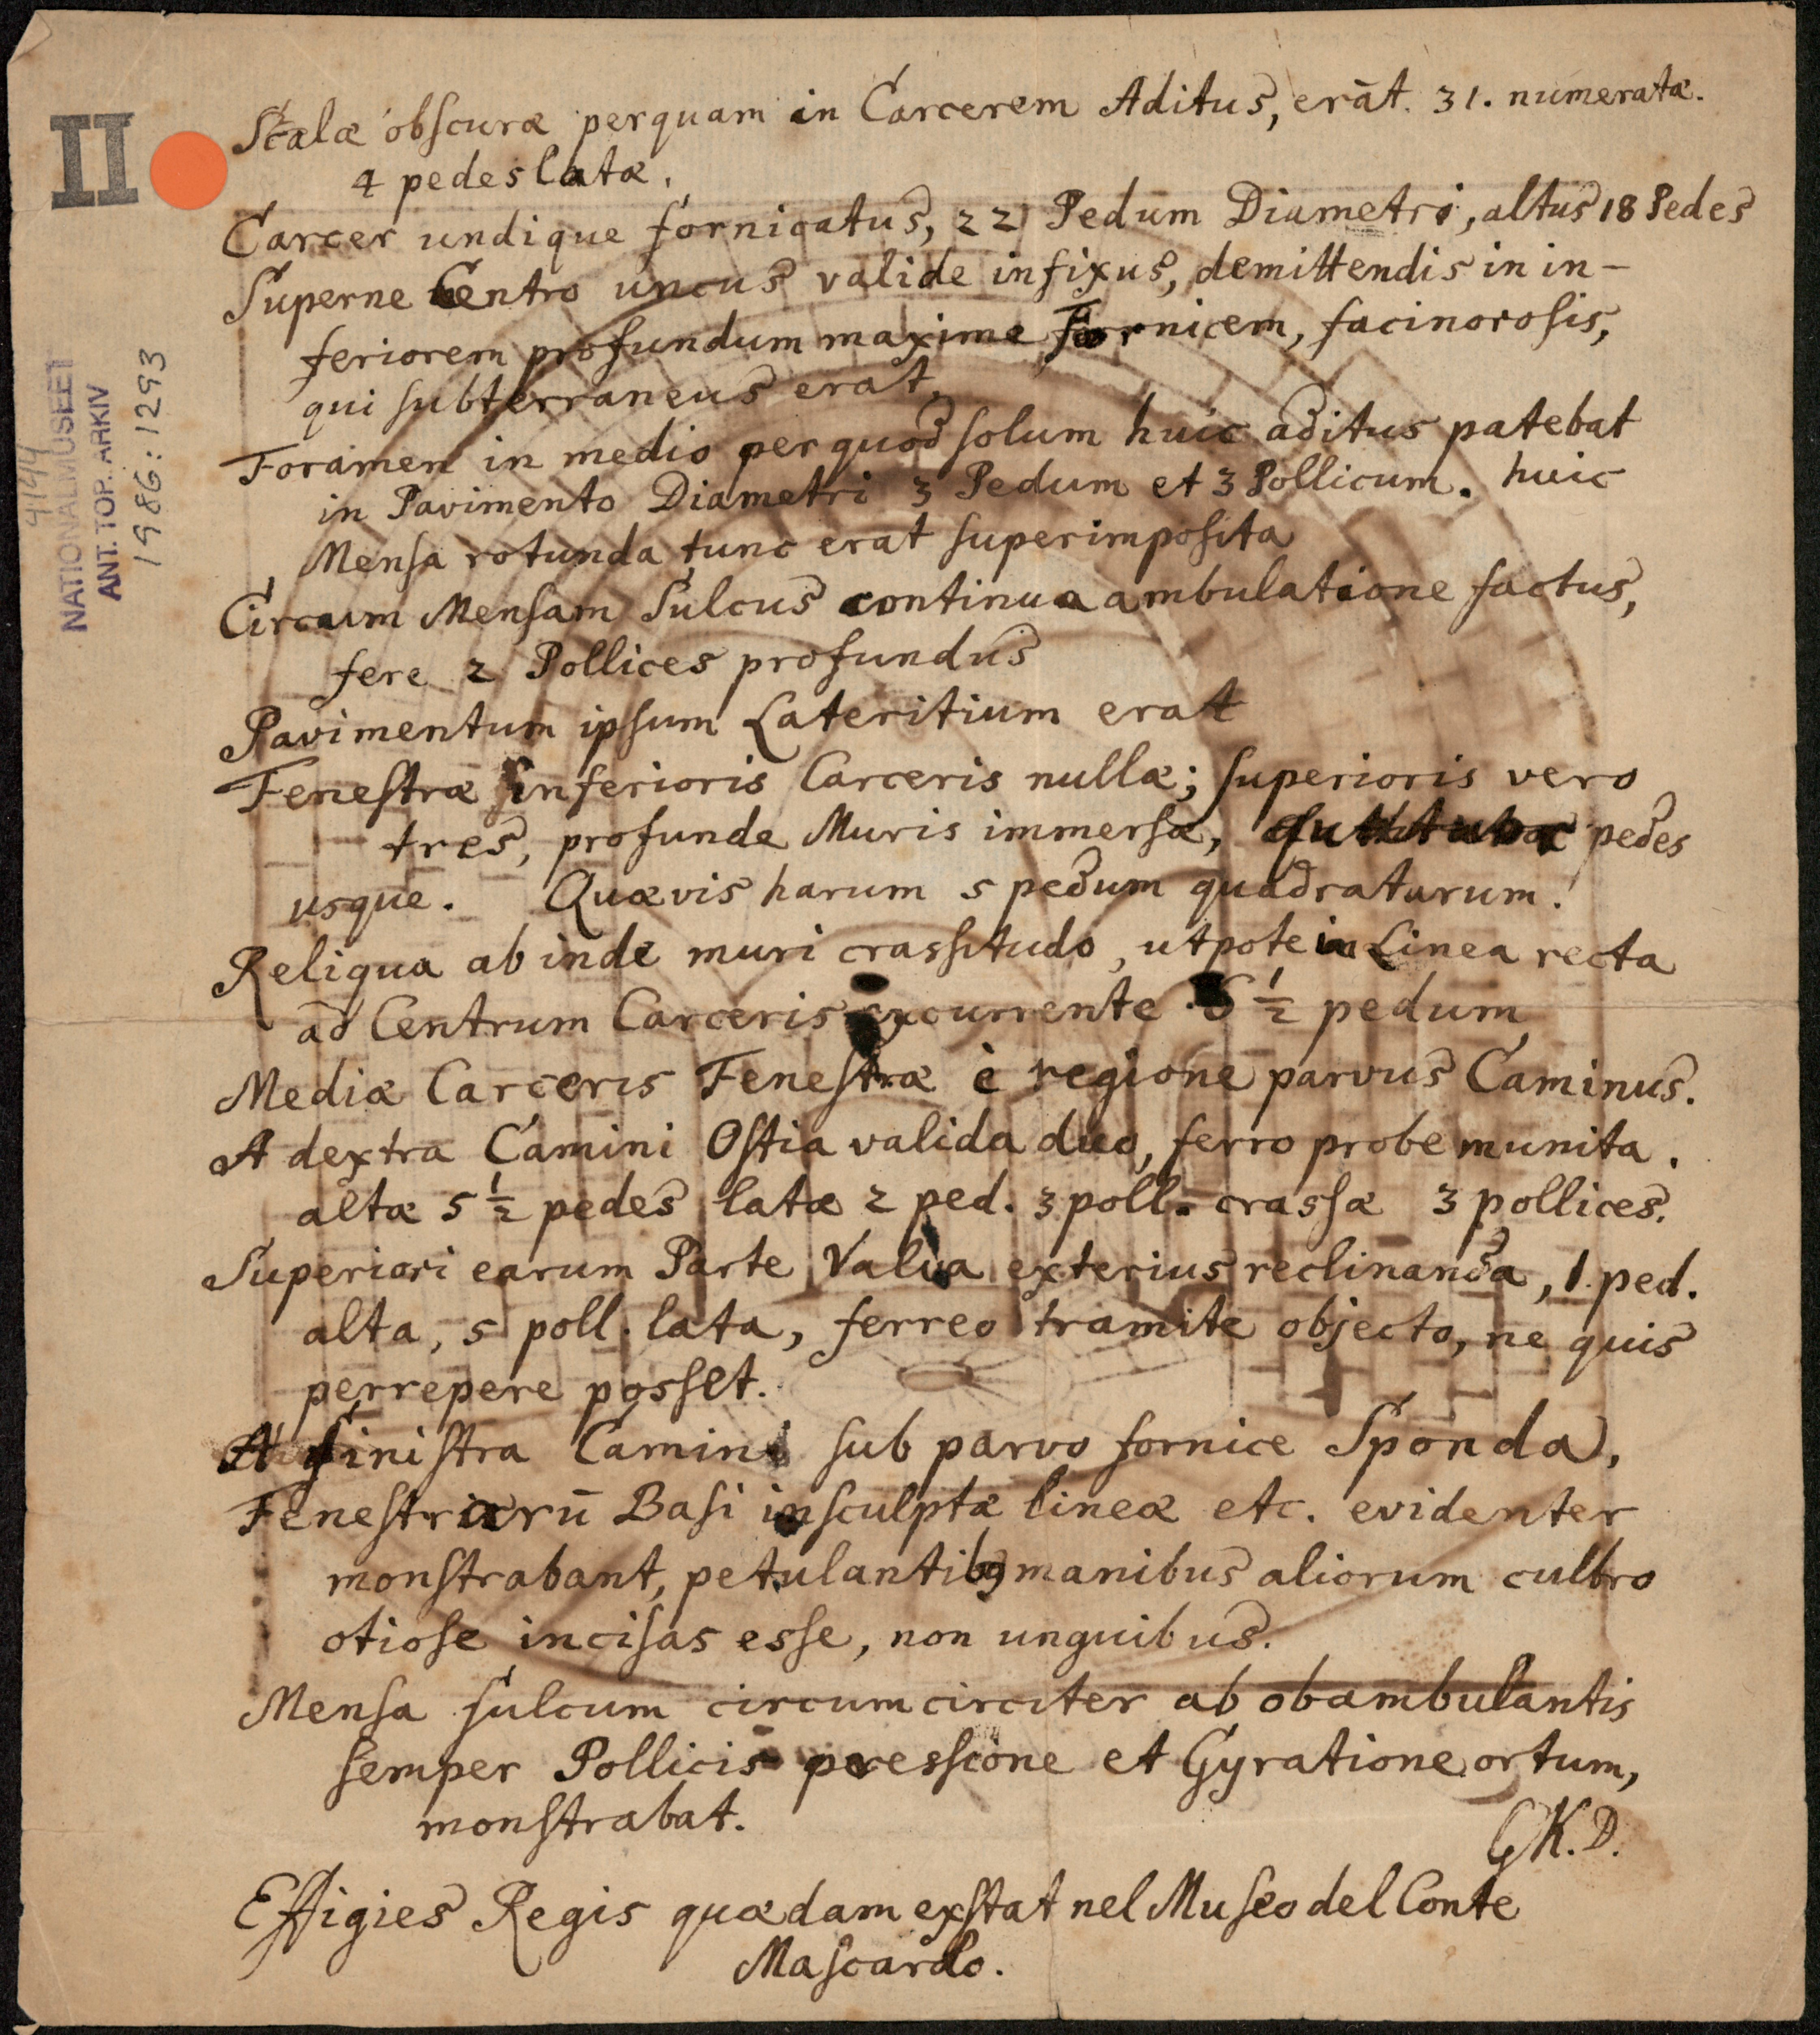 II
4144
NATIONALMUSEET
ANT. TOP. ARKIV
1986:1293
Scalæ obscuræ perquam in Carcerem Aditus, erāt. 31. numeratæ.
4 pedes latæ.
Carcer undique fornicatus, 22 Pedum Diametri, altus 18 Pedes
Superne Centro uncus valide infixus, demittendis in in-
feriorem profundum maxime Fornicem, facinorosis,
qui subterraneus erat.
Foramen in medio per quod solum huic aditus patebat
in Pavimento Diametri 3 Pedum et 3 Pollicum. huic
Mensa rotunda tunc erat superimposita
Circum Mensam Sulcus continua ambulatione factus,
fere 2 Pollices profundus
Pavimentum ipsum Lateritium erat
Fenestræ inferioris Carceris nullæ; superioris vero
tres, profunde Muris immersæ, pedes
usque. Quævis harum 5 pedum quadratarum.
Reliqua ab inde muri crassitudo, utpote in Linea recta
ad Centrum Carceris excurrente 6 1/2 pedum
Mediæ Carceris Fenestræ è regione parvus Caminus.
A dextra Camini Ostia valida duo, ferro probe munita.
altæ 5 1/2 pedes latæ 2 ped. 3 poll. crassæ 3 pollices.
Superiori earum Parte Valva exterius reclinanda, 1. ped.
alta, 5 poll. lata, ferreo tramite objecto, ne quis
perrepere posset.
A sinistra Camini sub parvo fornice Sponda,
Fenestrarū Basi insculptæ lineæ etc. evidenter
monstrabant, petulantibꝰ manibus aliorum cultro
otiose incisas esse, non unguibus.
Mensa sulcum circumcirciter ab obambulantis
semper Pollicis pressione et Gyratione ortum,
monstrabat.
GK.D.
Effigies Regis quædam exstat nel Museo del Conte
Mascardo.